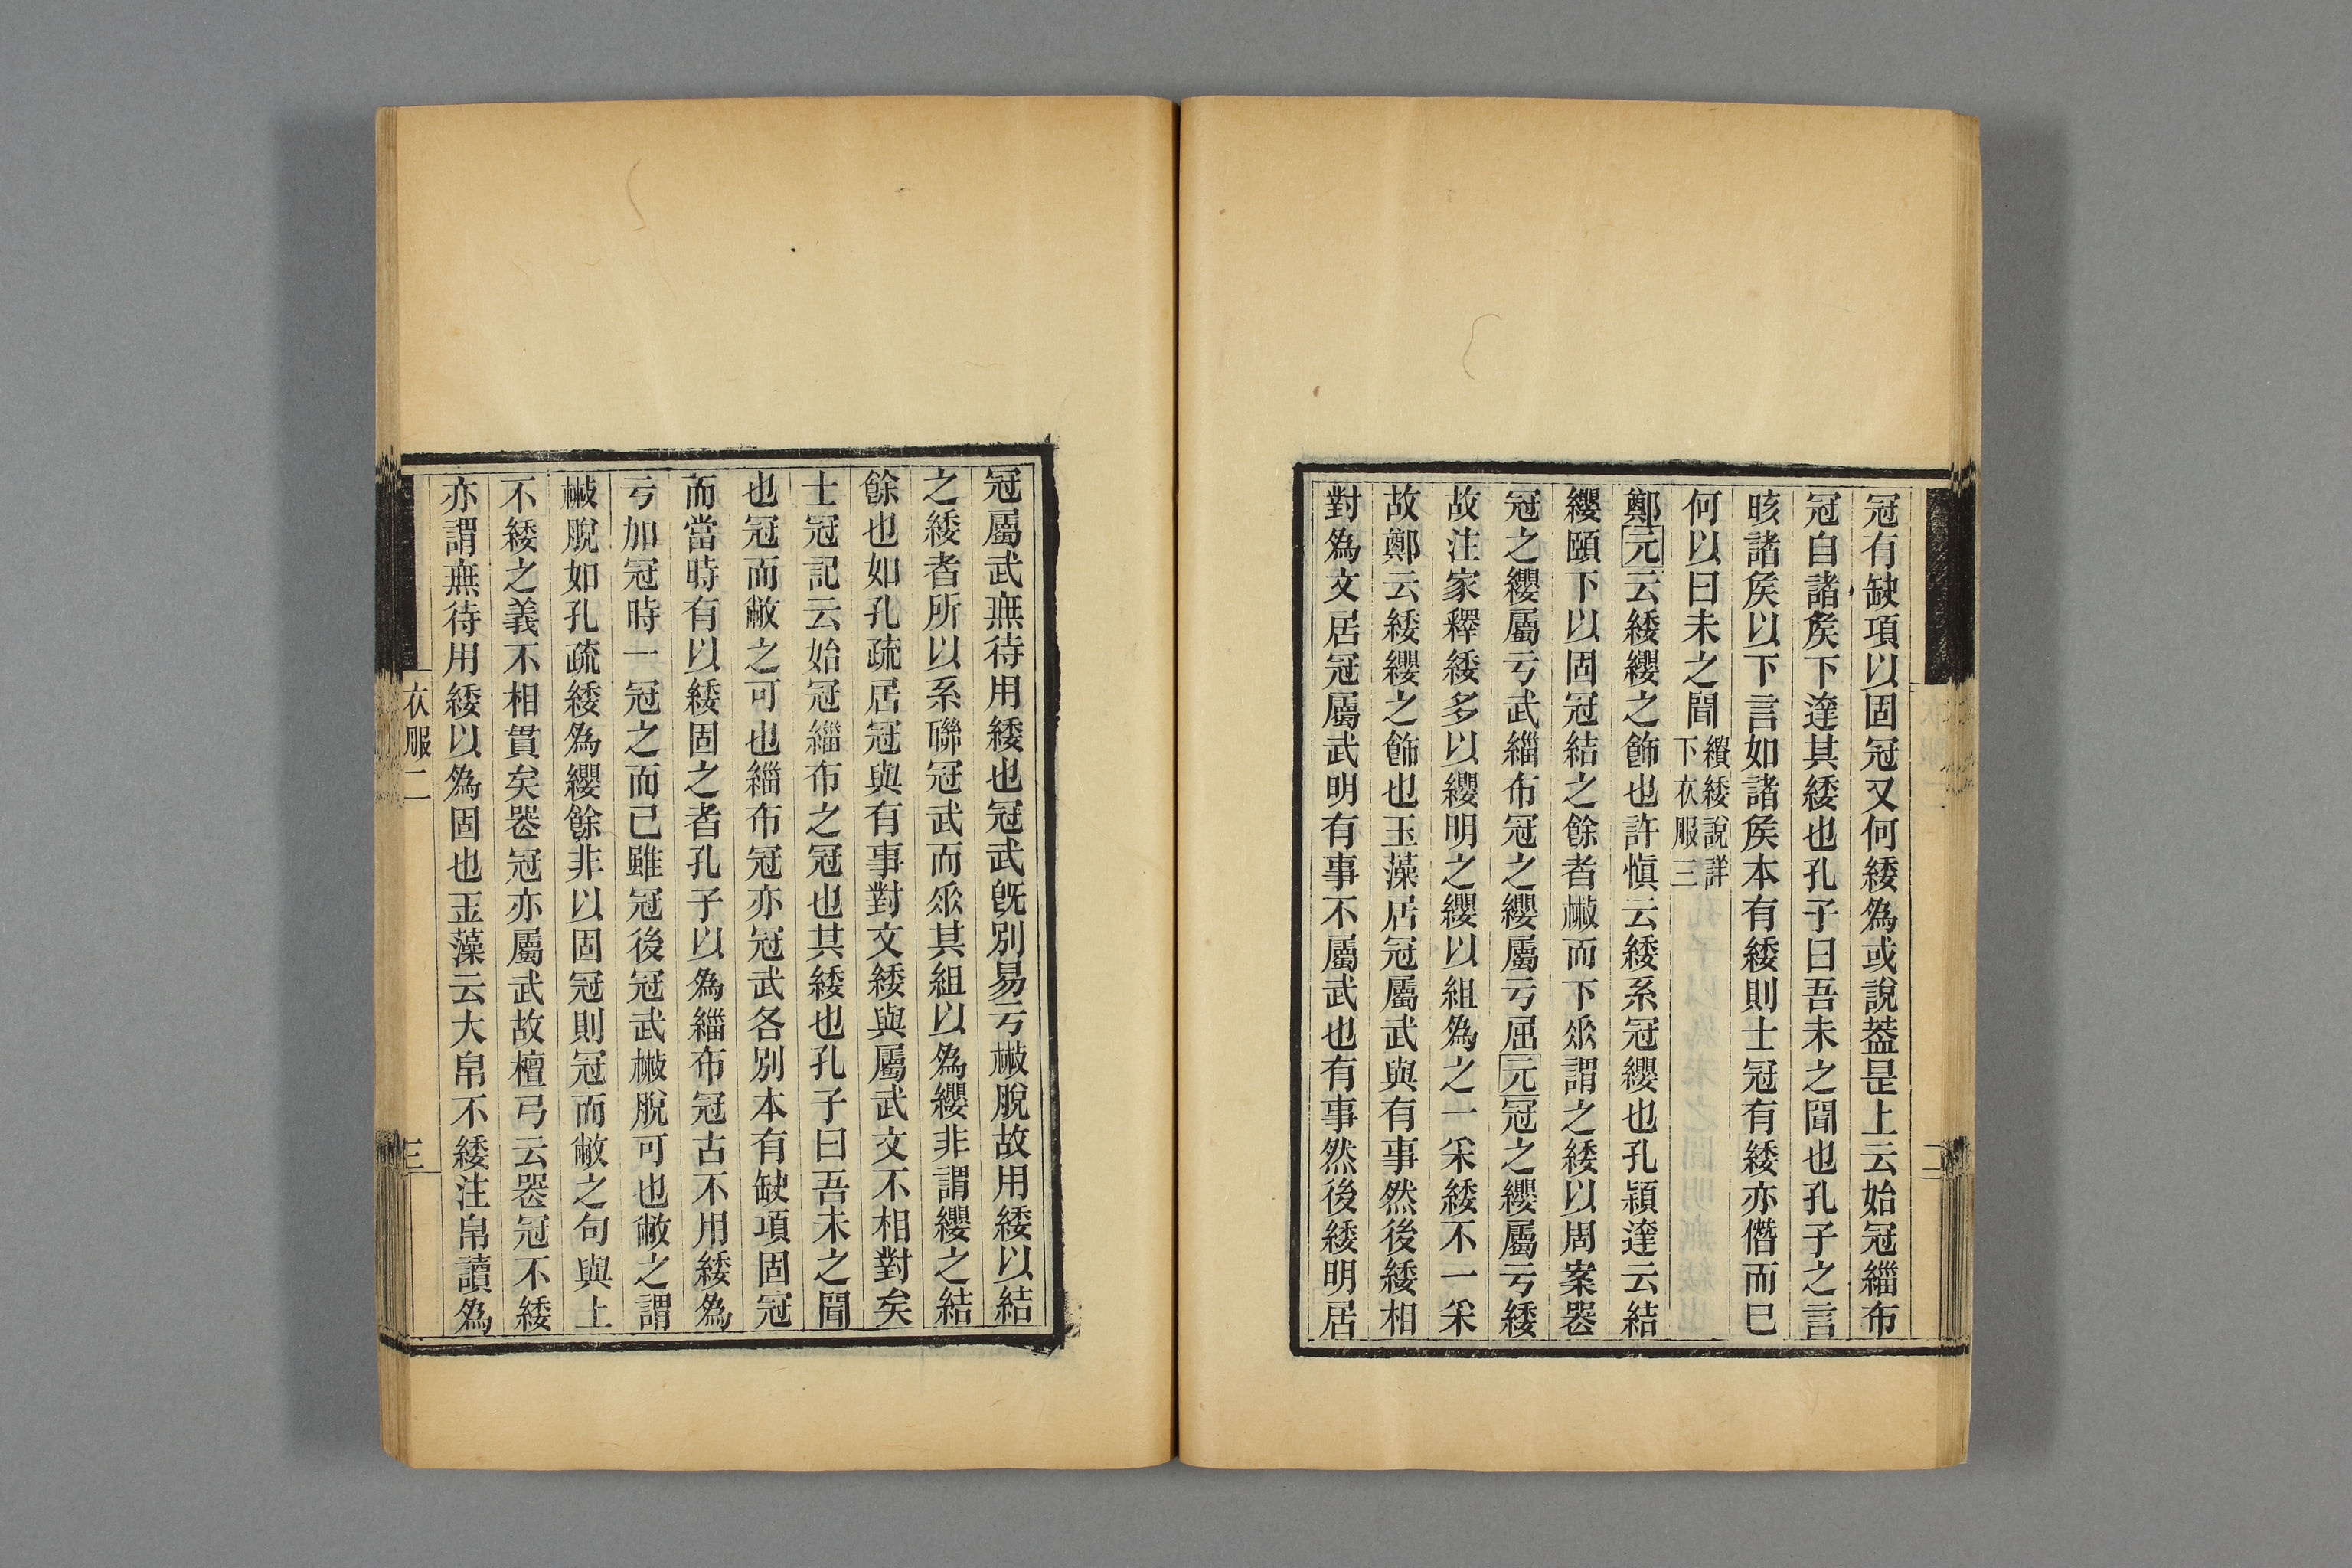 冠有缺項以固冠又何緌爲或說葢是上云始冠緇布
冠自諸矦下達其緌也孔子曰吾未之聞也孔子之言
晐諸矦以下言如諸矦本有緌則士冠有緌亦僭而巳
何以曰未之聞繢緌說詳下衣服三
鄭元云緌纓之飾也許愼云緌系冠纓也孔穎達云結
纓頤下以固冠結之餘者㪚而下𠂹謂之緌以周案喪
冠之纓屬亏武緇布冠之纓屬亏屈元冠之纓屬亏緌
故注家釋緌多以纓明之纓以組爲之一采緌不一采
故鄭云緌纓之飾也玉藻居冠屬武與有事然後緌相
對爲文居冠屬武明有事不屬武也有事然後緌明居
冠屬武無待用緌也冠武旣別易亏㪚脫故用緌以結
之緌者所以系聯冠武而𠂹其組以爲纓非謂纓之結
餘也如孔疏居冠與有事對文緌與屬武文不相對矣
士冠記云始冠緇布之冠也其緌也孔子曰吾未之聞
也冠而敝之可也緇布冠亦冠武各別本有缺項固冠
而當時有以緌固之者孔子以爲緇布冠古不用緌爲
亏加冠時一冠之而己雖冠後冠武㪚脫可也敝之謂
㪚脫如孔疏緌爲纓餘非以固冠則冠而敝之句與上
不緌之義不相貫矣喪冠亦屬武故檀弓云喪冠不緌
亦謂無待用緌以爲固也玉藻云大帛不緌注帛讀爲
衣服二
三